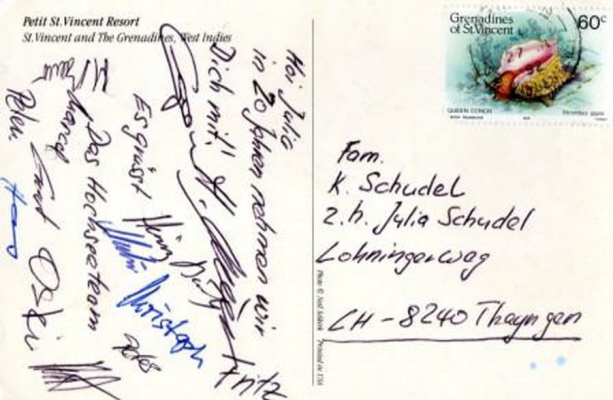 Petit St.Vincent Resort
St.Vincent and The Grenadines, West Indies
Hoi Julia
in 20 Jahren nehmen wir
Dich mit!
Fritz
Es grüsst
Das Hochseeteam
Marcel
Peter
Oski
Christoph
Photo © Josef Schibler Printed in USA
Grenadines
of St.Vincent
60c
QUEEN CONCH
Strombus gigas
Fam.
K. Schudel
z.h. Julia Schudel
Lohningerweg
CH-8240 Thayngen